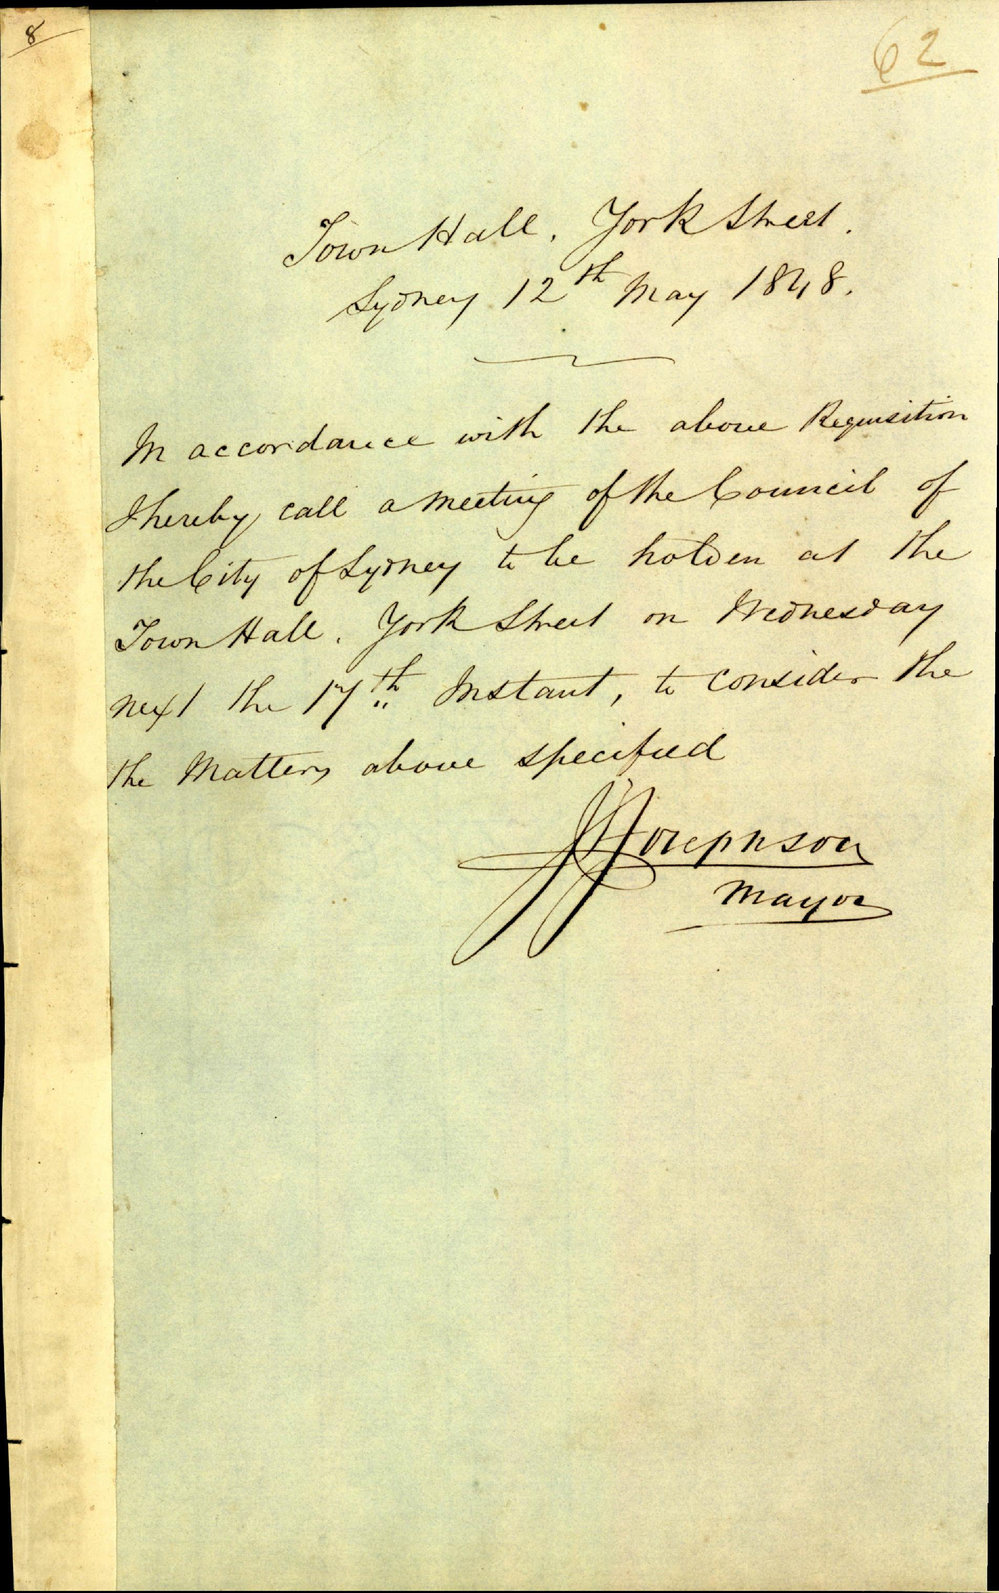 8
62
Town Hall, York Street.
Sydney 12th May 1848.
In accordance with the above Requisition
I hereby call a Meeting of the Council of
the City of Sydney to be holden at the
Town Hall. York Street on Wednesday
next the 17th Instant, to consider the
the Matters above specified
J Josephson
Mayor